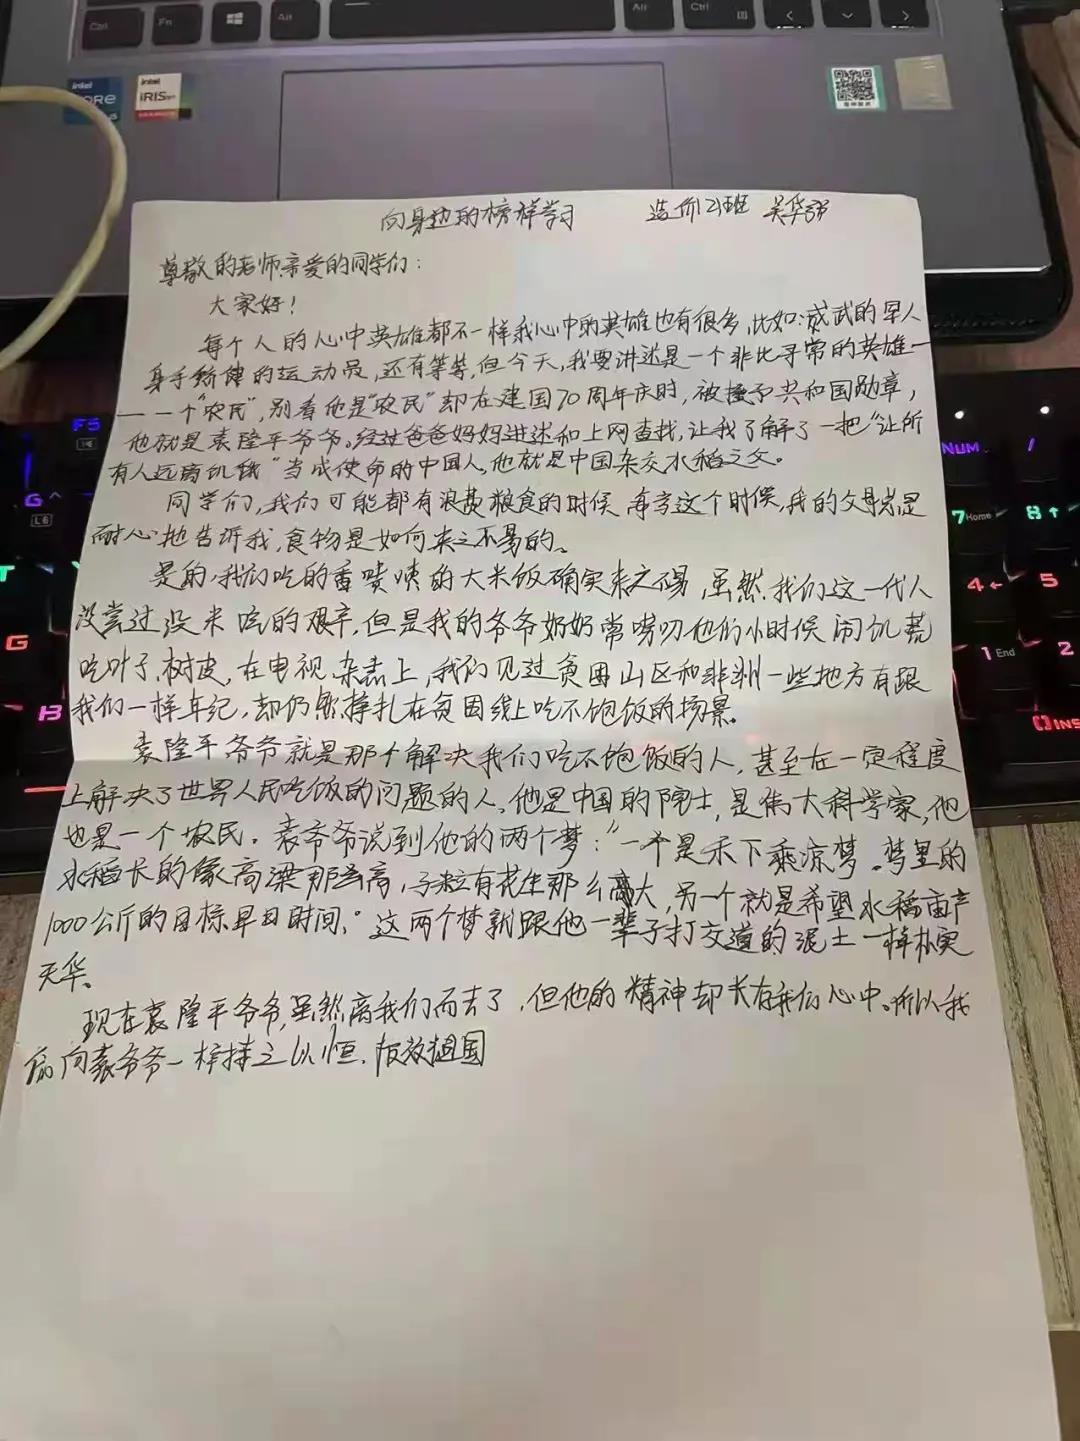 Ctrl Fn Alt Alt Ctrl
intel CORE
intel IRIS
向身边的榜样学习 造价21班 吴华
尊敬的老师.亲爱的同学们：
大家好！
每个人的心中英雄都不一样我心中的英雄也有很多,比如:威武的军人
身手矫健的运动员,还有等等,但今天,我要讲述是一个非比寻常的英雄一
——个"农民",别看他是"农民"却在建国70周年庆时,被授予共和国勋章,
他就是袁隆平爷爷。经过爸爸妈妈讲述和上网查找,让我了解了一把"让所
有人远离饥饿"当成使命的中国人,他就是中国杂交水稻之父。
同学们,我们可能都有浪费粮食的时候 每享这个时候,我的父母总是
耐心地告诉我,食物是如何来之不易的。
是的,我们吃的香喷喷的大米饭确实来之不易,虽然,我们这一代人
没尝过没米吃的艰辛,但是我的爷爷奶奶常唠叨他们小时候闹饥荒
吃叶子.树皮,在电视.杂志上,我们见过贫困山区和非洲一些地方有跟
我们一样年纪,却仍然挣扎在贫困线上吃不饱饭的场景。
袁隆平爷爷就是那个解决我们吃不饱饭的人,甚至在一定程度
上解决了世界人民吃饭的问题的人,他是中国的院士,是伟大科学家,他
也是一个农民。袁爷爷说到他的两个梦："一个是禾下乘凉梦。梦里的
水稻长的像高粱那么高,子粒有花生那么大,另一个就是希望水稻亩产
1000公斤的目标早日时间,"这两个梦就跟他一辈子打交道的泥土一样朴实
天华。
现在袁隆平爷爷,虽然离我们而去了,但他的精神却长存我们心中。所以我
向袁爷爷一样持之以恒.报效祖国
F5
G
L6
NUM /
7 Home 8
4 5
1 End 2
G
B
INS